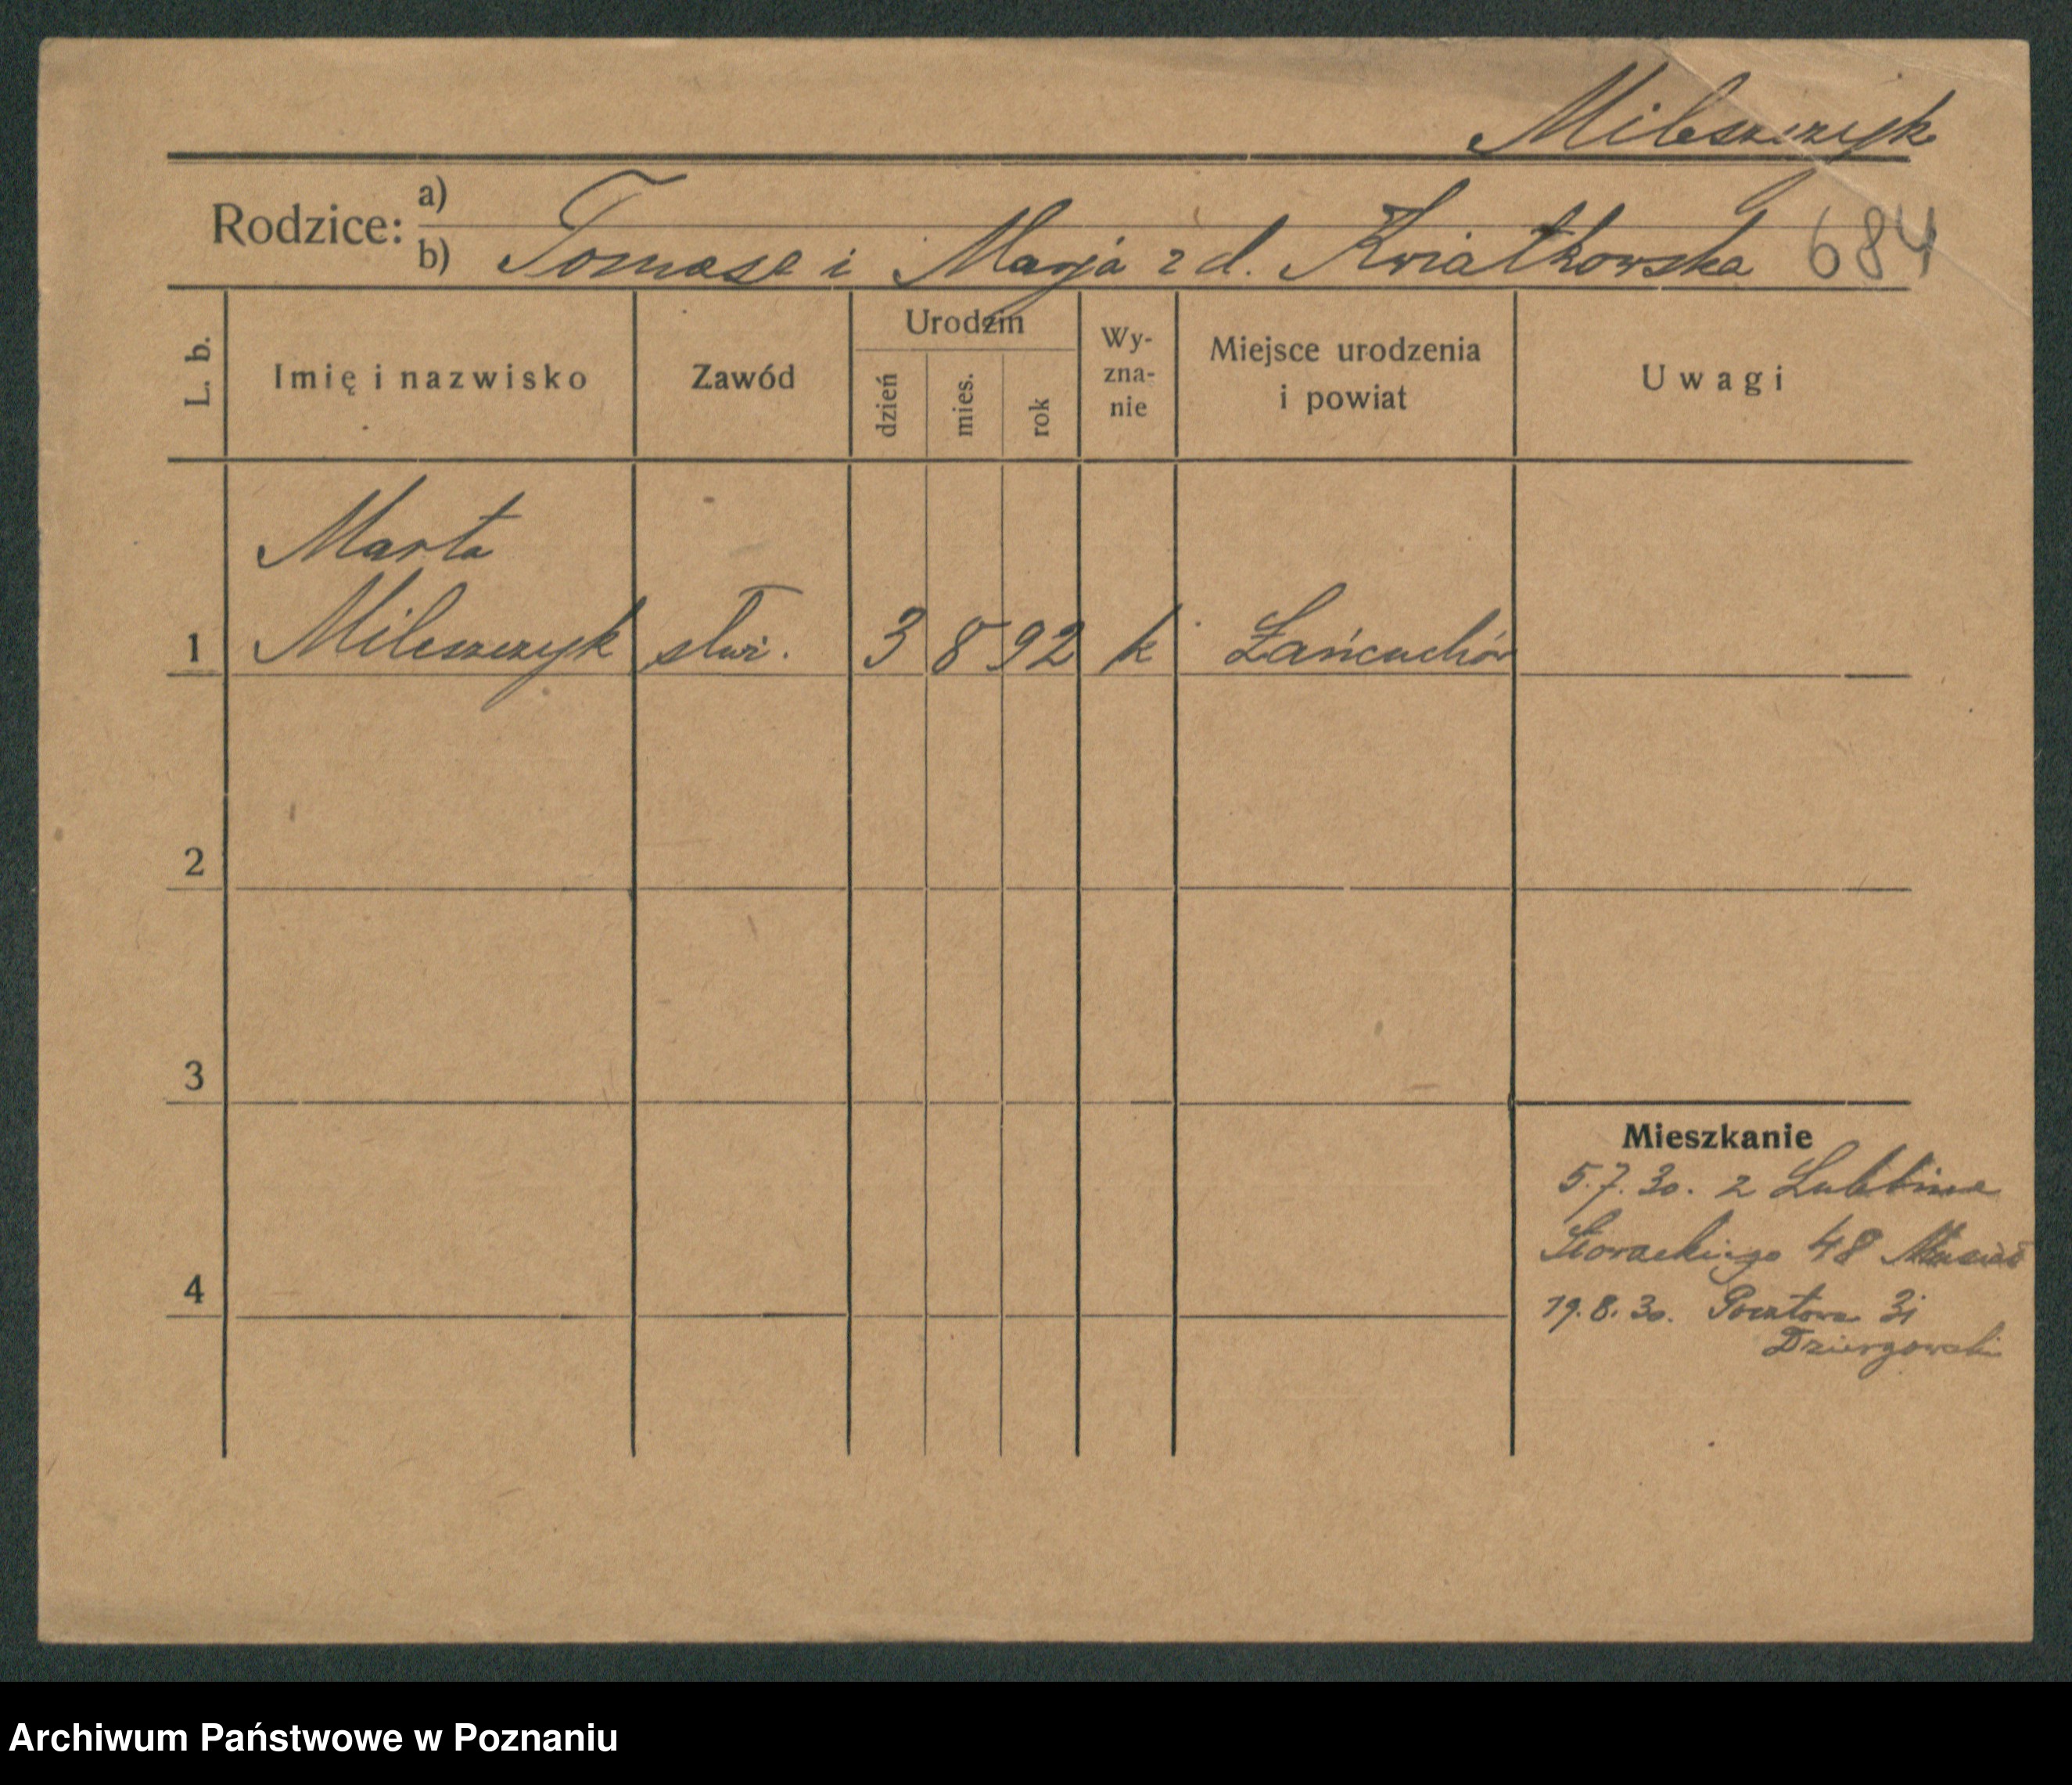 Mileszczyk
Rodzice:
a)
b) Tomasz i Marja z d. Kwiatkowska 684
L. b.
Imię i nazwisko
Zawód
Urodzin
dzień
mies.
rok
Wy-
zna-
nie
Miejsce urodzenia
i powiat
Uwagi
Marta
1 Mileszczyk służ. 3 8 92 k Łańcuchów
2
3
4
Mieszkanie
5.7.30. z Lublina
48
19.8.30. Pocztowa 31
Dziergowski
Archiwum Państwowe w Poznaniu